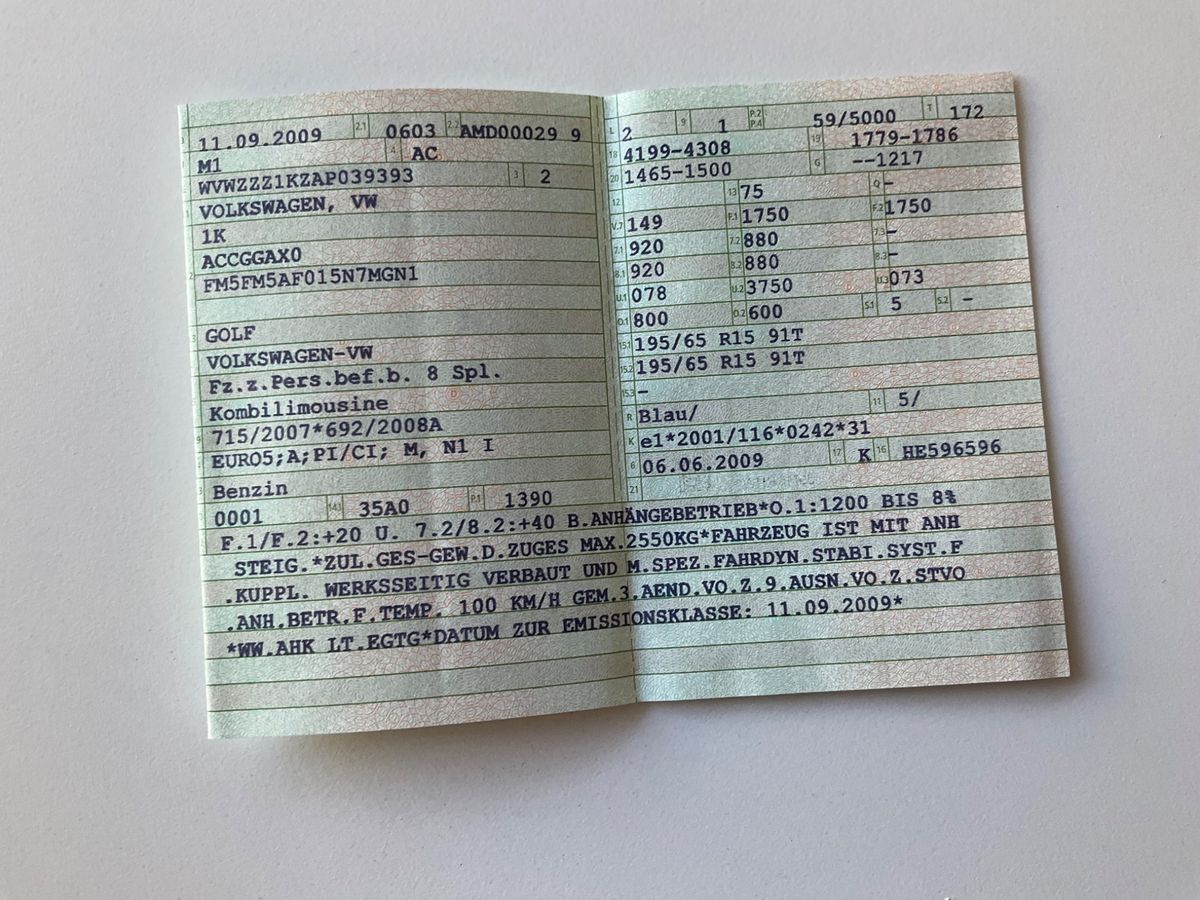 11.09.2009 2.1 0603 2.2 AMD00029 9
M1 4 AC
WVWZZZ1KZAP039393 3 2
VOLKSWAGEN, VW
1K
ACCGGAX0
FM5FM5AF015N7MGN1
GOLF
VOLKSWAGEN-VW
Fz.z.Pers.bef.b. 8 Spl.
Kombilimousine
715/2007*692/2008A
EURO5;A;PI/CI; M, N1 I
Benzin
0001 14.1 35A0 P.1 1390
L 2 9 1 P.2 P.4 59/5000 T 172
18 4199-4308 19 1779-1786
20 1465-1500 G --1217
12 13 75 Q -
V.7 149 F.1 1750 F.2 1750
7.1 920 7.2 880 7.3 -
8.1 920 8.2 880 8.3 -
U.1 078 U.2 3750 U.3 073
O.1 800 O.2 600 S.1 5 S.2 -
15.1 195/65 R15 91T
15.2 195/65 R15 91T
15.3 -
R Blau/ 11 5/
K e1*2001/116*0242*31
6 06.06.2009 17 K 16 HE596596
21
F.1/F.2:+20 U. 7.2/8.2:+40 B.ANHÄNGEBETRIEB*O.1:1200 BIS 8%
STEIG.*ZUL.GES-GEW.D.ZUGES MAX.2550KG*FAHRZEUG IST MIT ANH
.KUPPL. WERKSSEITIG VERBAUT UND M.SPEZ.FAHRDYN.STABI.SYST.F
.ANH.BETR.F.TEMP. 100 KM/H GEM.3.AEND.VO.Z.9.AUSN.VO.Z.STVO
*WW.AHK LT.EGTG*DATUM ZUR EMISSIONSKLASSE: 11.09.2009*